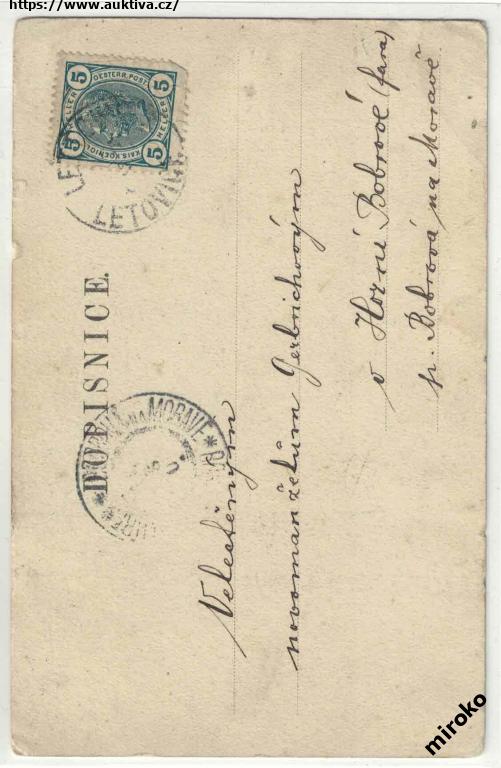 https://www.auktiva.cz/
5 5
OESTERR. POST
HELLER HELLER
KAIS. KOENIGL.
5 5
LETOVICE
DOPISNICE.
NA MORAVĚ *
Velectěným
novomanželům Gerbrichovým
v Horní Bobrové (fara)
p. Bobrová na Moravě
miroko